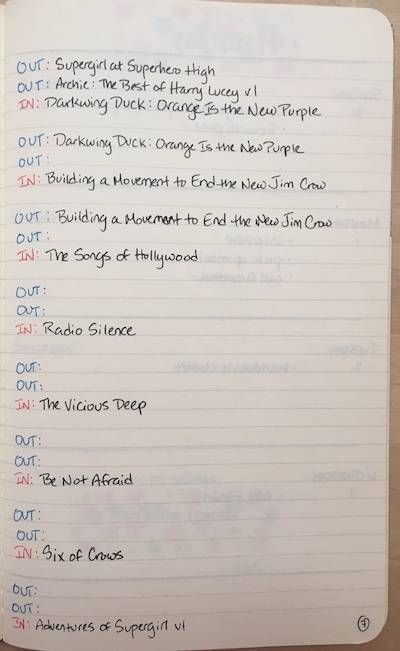 OUT: Supergirl at Superhero High
OUT: Archie: The Best of Harry Lucey v1
IN: Darkwing Duck: Orange Is the New Purple
OUT: Darkwing Duck: Orange Is the New Purple
OUT:
IN: Building a Movement to End the New Jim Crow
OUT: Building a Movement to End the New Jim Crow
OUT:
IN: The Songs of Hollywood
OUT:
OUT:
IN: Radio Silence
OUT:
OUT:
IN: The Vicious Deep
OUT:
OUT:
IN: Be Not Afraid
OUT:
OUT:
IN: Six of Crows
OUT:
OUT:
IN: Adventures of Supergirl v1
7